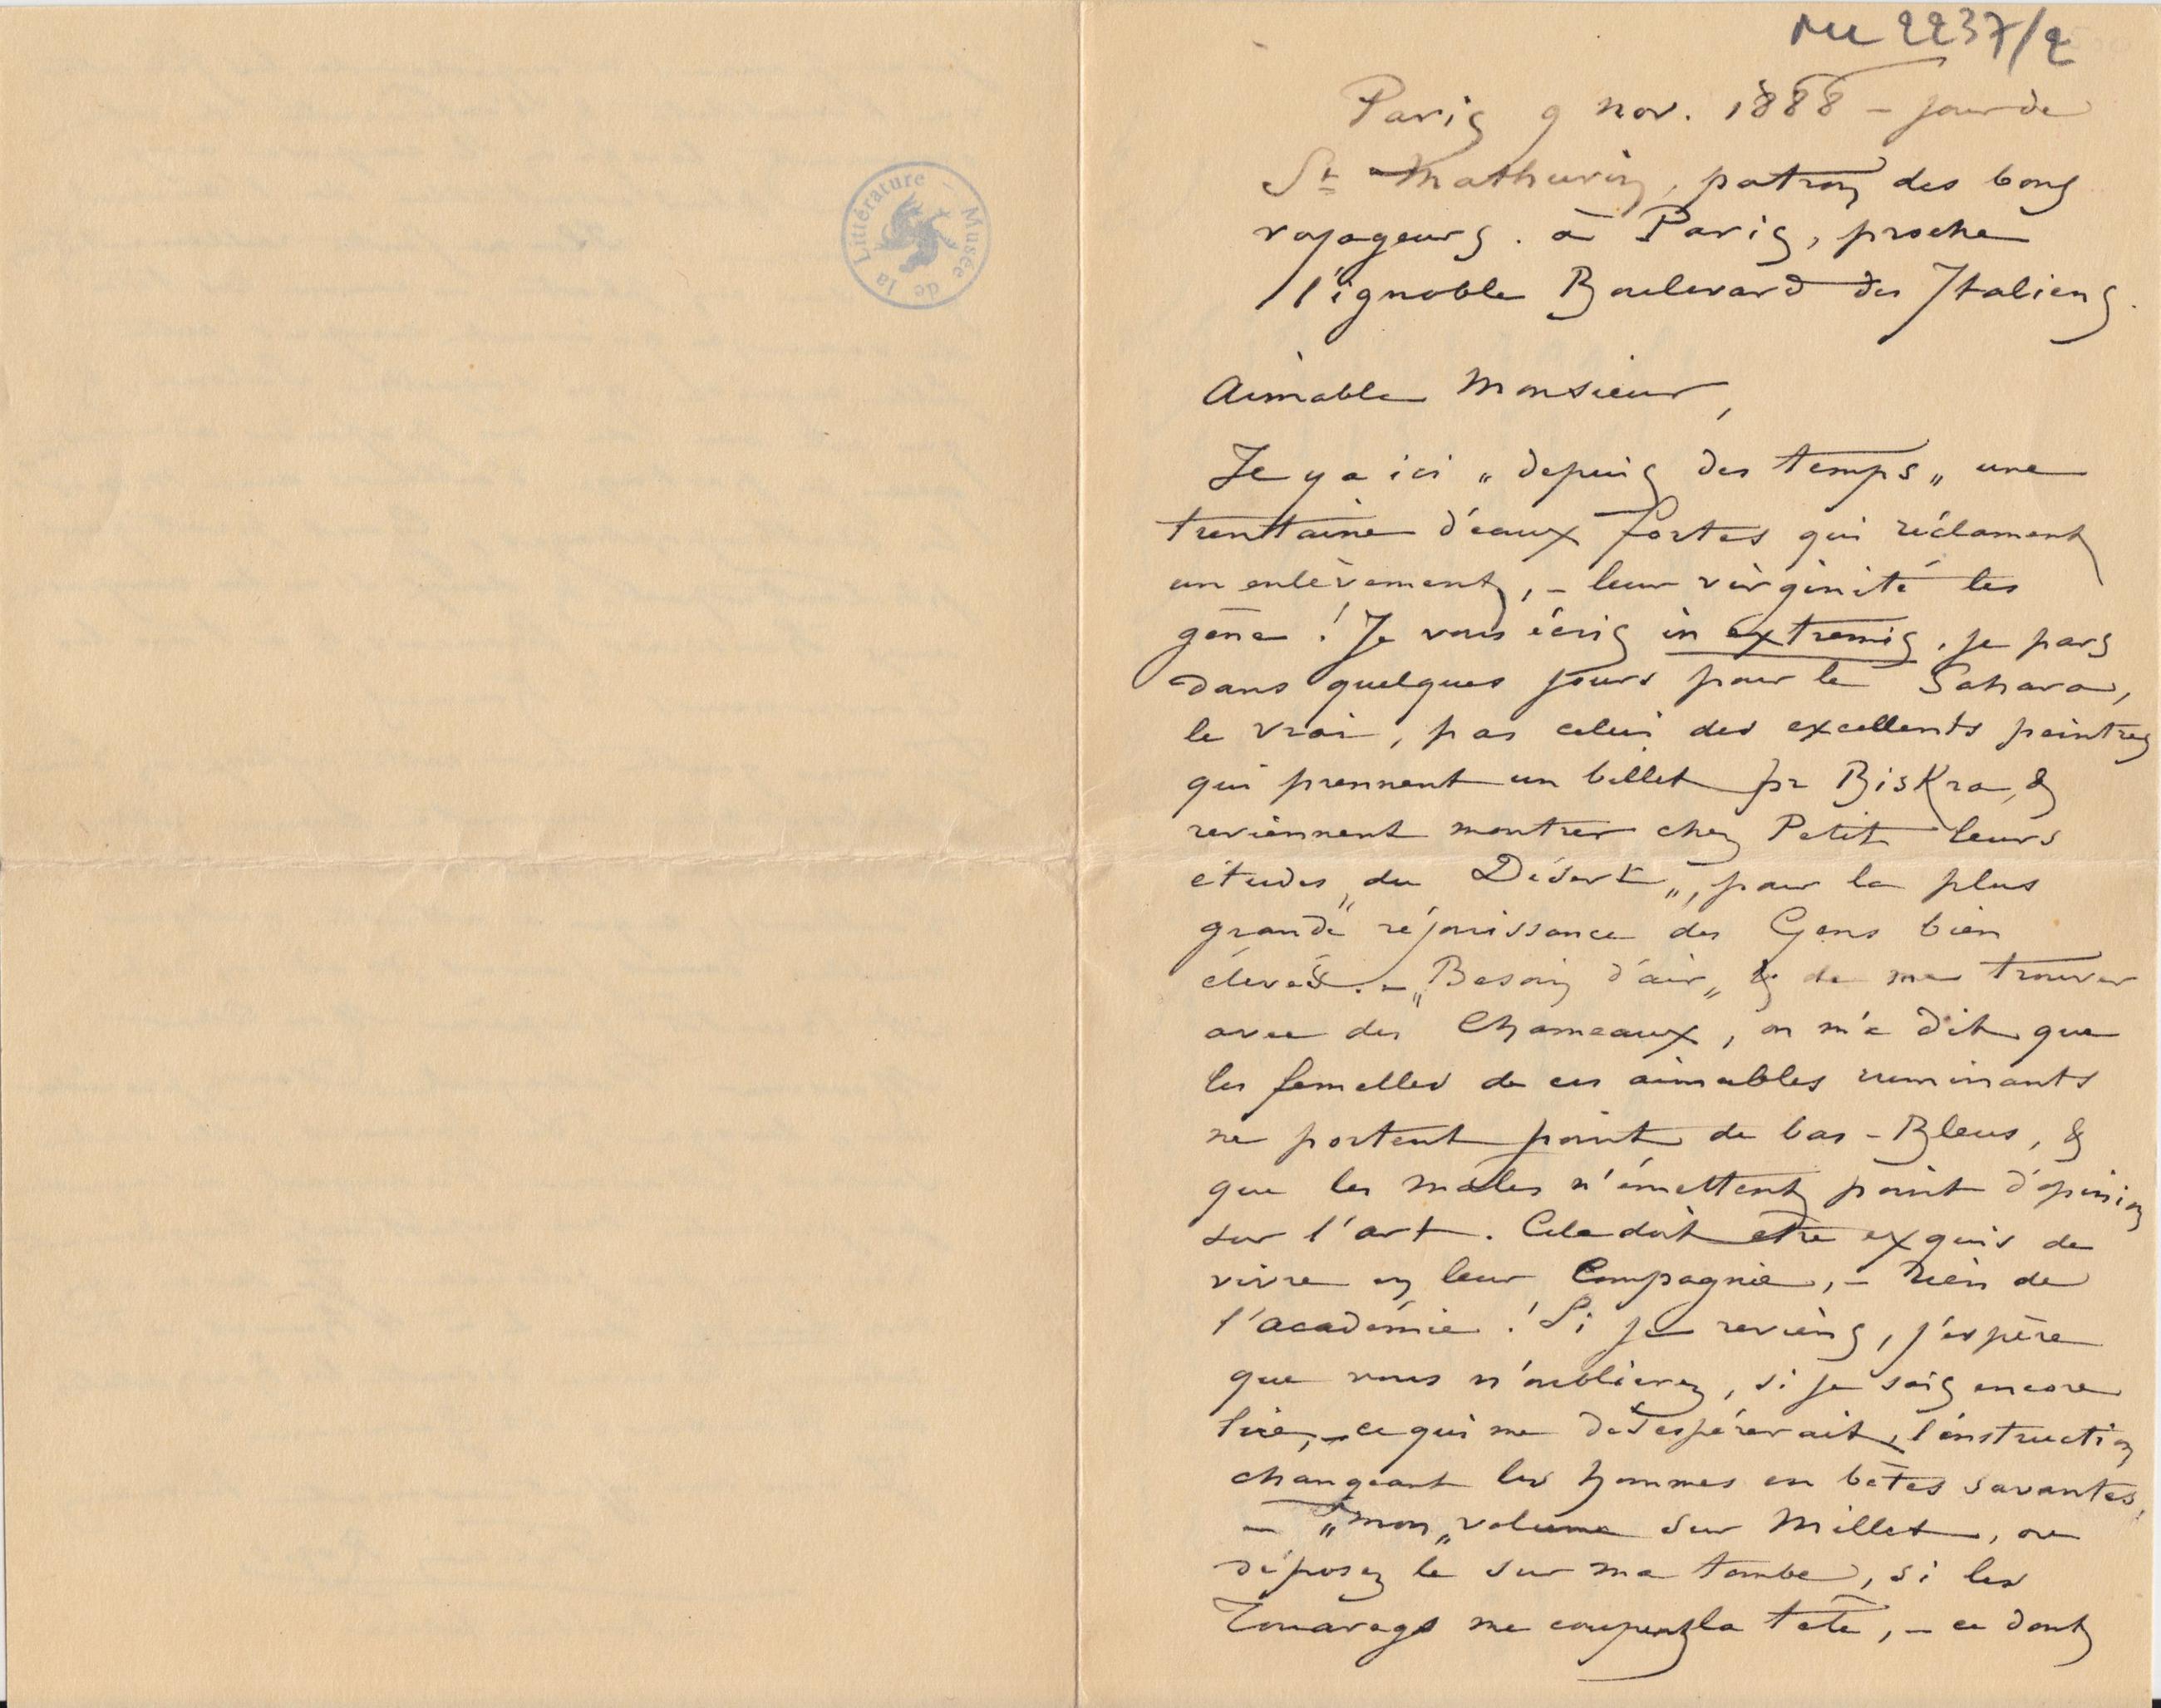 Musée de la Littérature –
ML 2237/2
Paris 9 nov. 1888 – jour de
St Mathurin, patron des bons
voyageurs. à Paris, proche
l'ignoble Boulevard des Italiens.
Aimable Monsieur,
Il y a ici „depuis des temps„ une
trentaine d'eaux fortes qui réclament
un enlèvement, – leur virginité les
gène! Je vous écris in extremis, je pars
dans quelques jours pour le Sahara,
le vrai, pas celui des excellents peintres
qui prennent un billet pr Biskra, &
reviennent montrer chez Petit leurs
études „du Désert„, pour la plus
grande réjouissance des Gens bien
élevés. – „Besoin d'air„ & de me trouver
avec des Chameaux, on m'a dit que
les femelles de ces aimables ruminants
ne portent point de bas-Bleus, &
que les mâles n'émettent point d'opinion
sur l'art. Cela doit etre exquis de
vivre en leur Compagnie, – rien de
l'académie! Si je reviens, j'espère
que vous n'oublierez, si je sais encore
lire, – ce qui me désespérerait, l'instruction
changeant les hommes en bêtes savantes,
– „mon„ volume sur Millet, ou
déposez le sur ma tombe, si les
Touaregs me coupent la tête, – ce dont